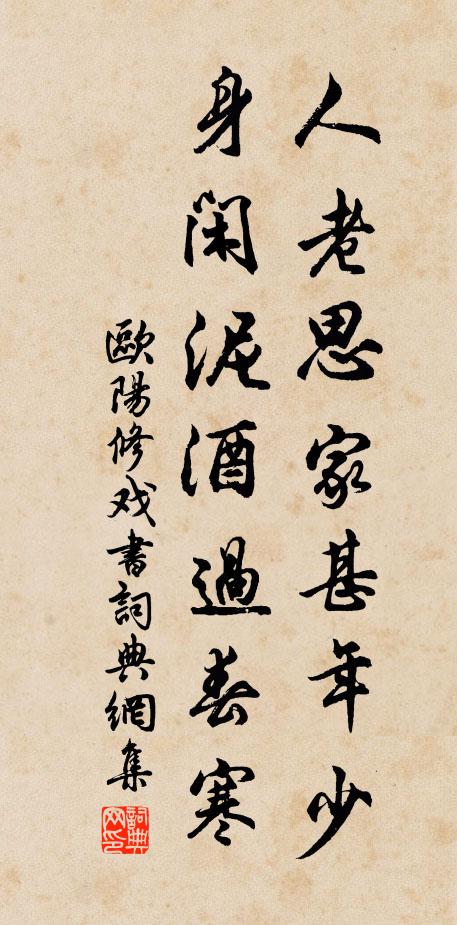 人老思家甚年少
身閑泥酒過春寒
歐陽修戏書詞典網集
詞典網印